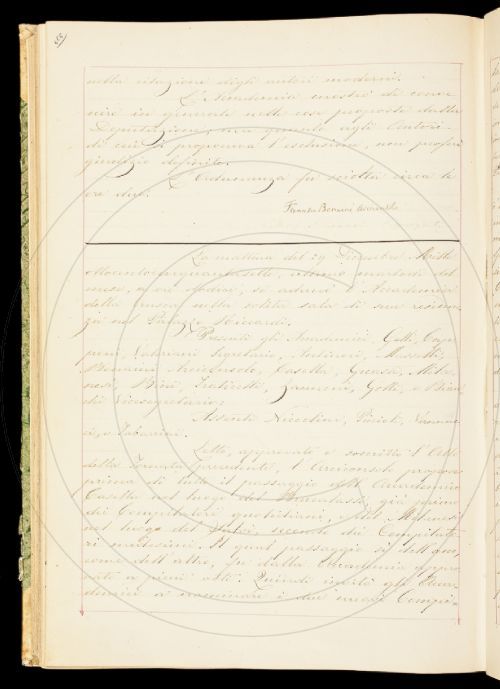 nella citazione degli autori moderni.
L'Accademia mostrò di conve-
nire in generale nelle cose proposte dalla
Deputazione, ma quanto agli Autori
di cui si proponeva l'esclusione, non proferì
giudizio definito.
L'Adunanza fu sciolta circa le
ore due.
Bonaini Arciconsolo
La mattina del 29 Dicembre Mille
Ottocentocinquantasette, ultimo martedì del
mese, a ore undici, si adunò l'Accademia
della Crusca nella solita sala di sua residen-
za nel Palazzo Riccardi.
Presenti gli Accademici, Cav. Cap-
poni, Valeriani Segretario, Antinori,
Bonaini Arciconsolo, Casella, Guasti, Mila-
nesi, Bini, Zannoni, e Bian-
chi Vicesegretario.
Assenti Niccolini, Vannuc-
ci, e Tabarrini.
Letto, approvato e soscritto l'Atto
della Tornata precedente, l'Arciconsolo propose
prima di tutto il passaggio dell'Accademico
Casella nel luogo del già primo
dei Compilatori quotidiani, del Milanesi
nel luogo del secondo dei Compilato-
ri medesimi. Il qual passaggio sì dell'uno,
come dell'altro, fu dalla Accademia appro-
vato a pieni voti. Quindi invitò gli Acca-
demici a nominare i due nuovi Compi-